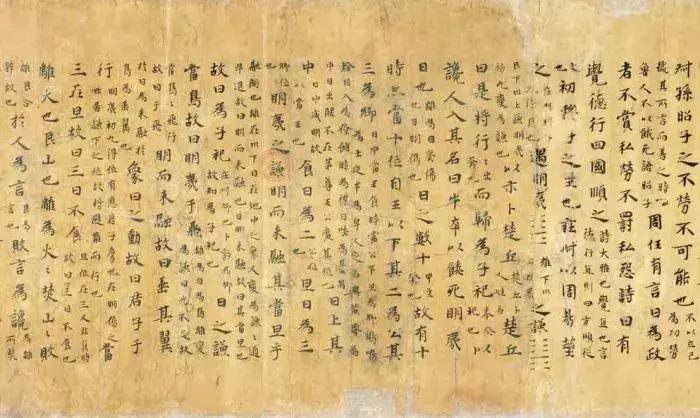 孫昭子之不勞不可能也 不以立己為功勞
據其所言而善之時魯人不以餓死語昭子 周任有言曰為政
者不賞私勞不罰私怨詩曰有
覺德行四國順之 詩大雅覺直也言德行直則四方順從
也 初穆子之生也莊叔以周易筮
之 遇明夷 離下以上 之謙
艮下以上謙明夷初九變為謙 以示卜楚丘 楚丘卜人姓名 楚丘
曰是將行 行出奔也 而歸為子祀 奉祭祀也 以
讒人入其名曰牛卒以餒死明夷
日也 離為日夷傷也日明傷也 日之數十 甲至癸也 故有十
時亦當十位自王以下其二為公其
三為卿 日中當王食時當公平旦為卿雞鳴為士夜半為皂人定為輿黃昏為隸
日入為僚晡時為僕日昳為臺隅中日出闕不在第尊王公曠其位也 日上其
中 日中盛明故以當王 食日為二 公位 旦日為三
卿位 明夷之謙明而未融其當旦乎
融朗也離在以下日在地中之象又變為謙謙道卑退故曰明而未融日明未融故曰其當旦也
故曰為子祀 莊叔卿也卜豹為卿故知為子祀也 日之謙
當鳥故曰明夷于飛 離為日為鳥離變為謙日光不足故
當鳥鳥飛行故曰于飛 明而未融故曰垂其翼
於日為未融於鳥為垂翼也 象日之動故曰君子于
行 明夷初九得位有應君子象也在明傷之世居謙下之位故將避難而行也 當
三在旦故曰三日不食 旦位在三又非食時故曰三日不食也
離火也艮山也離為火火焚山山敗
離艮合體故也 於人為言 艮為言也 敗言為讒 為離所焚